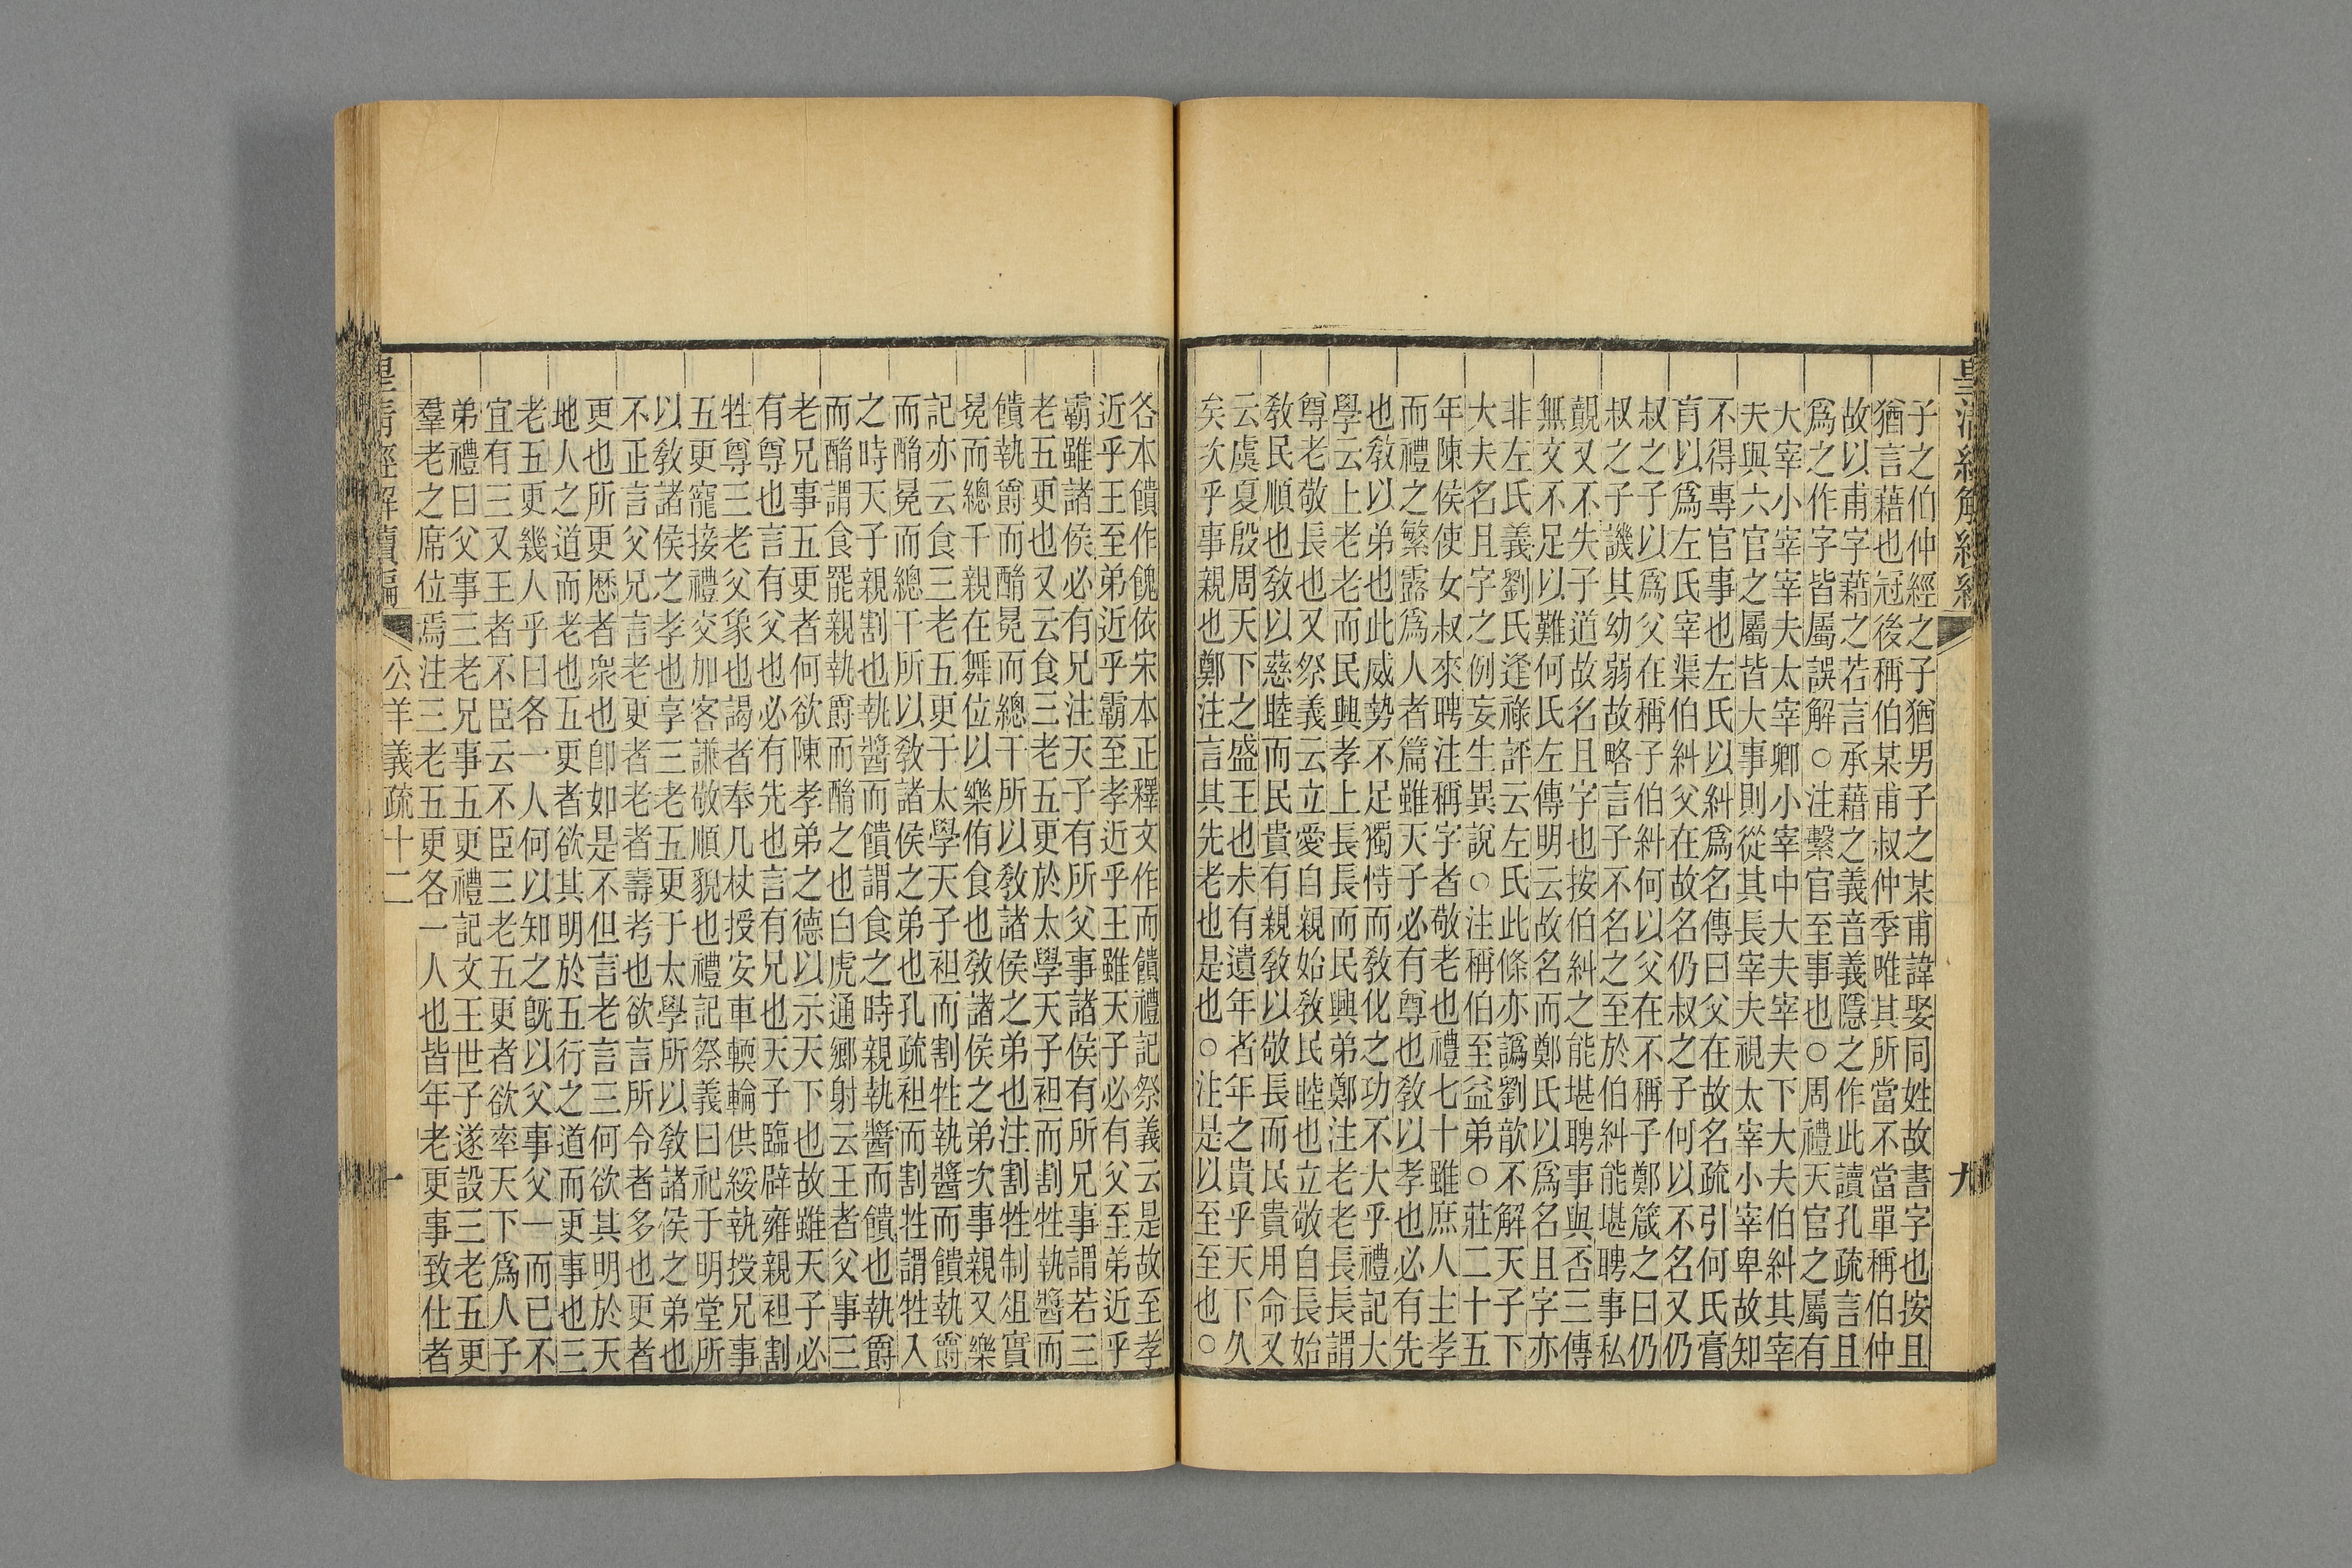 子之伯仲經之子猶男子之某甫諱娶同姓故書字也按且
猶言藉也冠後稱伯某甫叔仲季唯其所當不當單稱伯仲
故以甫字藉之若言承藉之義音義隱之作此讀孔疏言且
爲之作字皆屬誤解○注繫官至事也○周禮天官之屬有
大宰小宰宰夫太宰卿小宰中大夫宰夫下大夫伯糾其宰
夫與六官之屬皆大事則從其長宰夫視太宰小宰卑故知
不得專官事也左氏以糾爲名傳曰父在故名疏引何氏膏
肓以爲左氏宰渠伯糾父在故名仍叔之子何以不名又仍
叔之子以爲父在稱子伯糾何以父在不稱子鄭箴之曰仍
叔之子譏其幼弱故略言子不名之至於伯糾能堪聘事私
覿又不失子道故名且字也按伯糾之能堪聘事與否三傳
無文不足以難何氏左傳明云故名而鄭氏以爲名且字亦
非左氏義劉氏逢祿評云左氏此條亦譌劉歆不解天子下
大夫名且字之例妄生異說○注稱伯至益弟○莊二十五
年陳侯使女叔來聘注稱字者敬老也禮七十雖庶人主孝
而禮之繁露爲人者篇雖天子必有尊也教以孝也必有先
也教以弟也此威勢不足獨恃而教化之功不大乎禮記大
學云上老老而民興孝上長長而民興弟鄭注老老長長謂
尊老敬長也又祭義云立愛自親始教民睦也立敬自長始
教民順也教以慈睦而民貴有親教以敬長而民貴用命又
云虞夏殷周天下之盛王也未有遺年者年之貴乎天下久
矣次乎事親也鄭注言其先老也是也○注是以至至也○
各本饋作餽依宋本正釋文作而饋禮記祭義云是故至孝
近乎王至弟近乎霸至孝近乎王雖天子必有父至弟近乎
霸雖諸侯必有兄注天子有所父事諸侯有所兄事謂若三
老五更也又云食三老五更於太學天子袒而割牲執醬而
饋執爵而酳冕而總干所以教諸侯之弟也注割牲制俎實
冕而總干親在舞位以樂侑食也教諸侯之弟次事親又樂
記亦云食三老五更于太學天子袒而割牲執醬而饋執爵
而酳冕而總干所以教諸侯之弟也孔疏袒而割牲謂牲入
之時天子親割也執醬而饋謂食之時親執醬而饋也執爵
而酳謂食罷親執爵而酳之也白虎通鄉射云王者父事三
老兄事五更者何欲陳孝弟之德以示天下也故雖天子必
有尊也言有父也必有先也言有兄也天子臨辟雍親袒割
牲尊三老父象也謁者奉几杖授安車輭輪供綏執授兄事
五更寵接禮交加客謙敬順貌也禮記祭義曰祀于明堂所
以教諸侯之孝也享三老五更于太學所以教諸侯之弟也
不正言父兄言老更者老者壽考也欲言所令者多也更者
更也所更歷者衆也卽如是不但言老言三何欲其明於天
地人之道而老也五更者欲其明於五行之道而更事也三
老五更幾人乎曰各一人何以知之旣以父事父一而已不
宜有三又王者不臣云不臣三老五更者欲率天下爲人子
弟禮曰父事三老兄事五更禮記文王世子遂設三老五更
羣老之席位焉注三老五更各一人也皆年老更事致仕者
公羊義疏十二